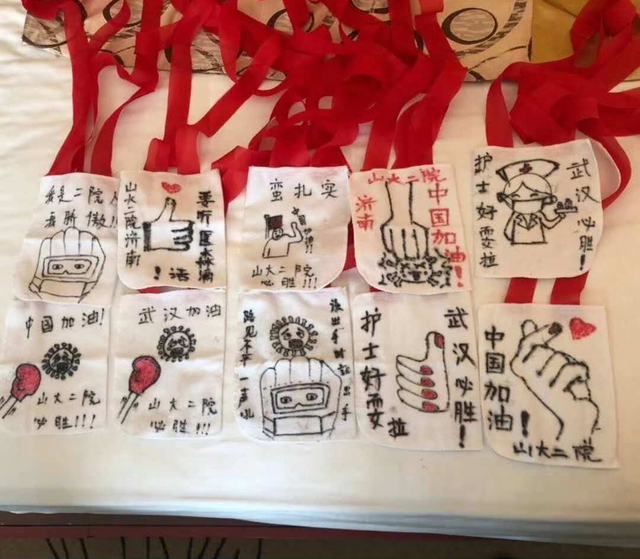 山大二院济南
要听
话!
蛮扎实
山大二院
必胜!!
山大二院
济南
中国加油!
护士好耍拉
武汉必胜!
中国加油!
山大二院
必胜!!!
武汉加油
山大二院
必胜!!!
路见不平一声吼
该出手时就出手
护士好耍拉
武汉必胜!
中国加油!
山大二院